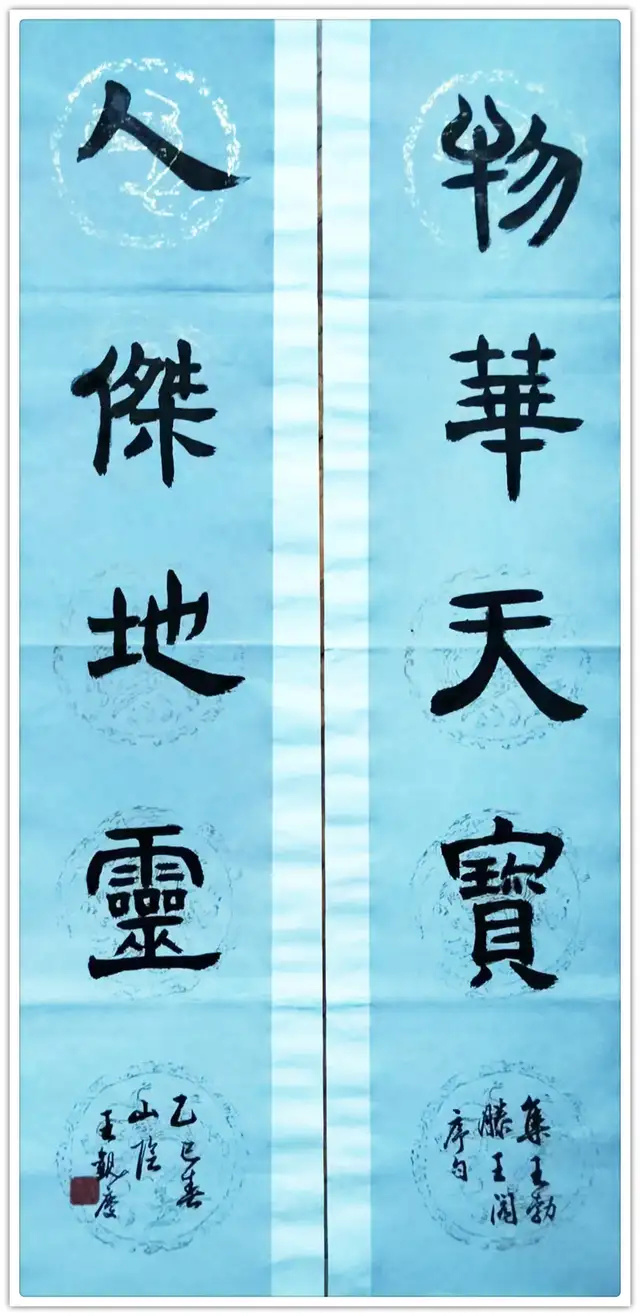 物華天寶
集王勃
滕王閣
序句
人傑地靈
乙巳春
山陰
王觀慶